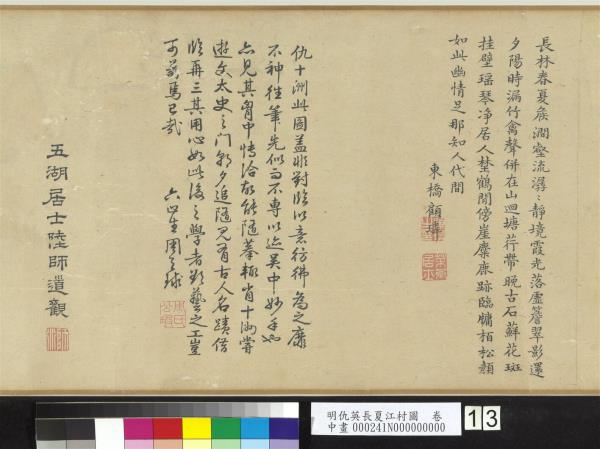 長林春夏矦澗壑流潺〻靜境霞光落虛簷翠影還
夕陽時漏竹禽聲併在山迴塘荇帶晚古石蘚花斑
挂壁瑤琴淨居人埜鶴閒傍崖麋鹿跡臨牗栢松顏
如此幽情足那知人代間
東橋顧璘
仇十洲此圖盖非對臨以意彷彿為之靡
不神往筆先似而不專以迹吴中妙手如
亦見其胷中博洽故能隨摹輒肖十洲嘗
遊文太史之门朝夕追隨見有古人名蹟借
臨再三其用心如此後之學者欲藝之工豈
可苟焉已哉 六止生周天球
五湖居士陸師道觀
明仇英長夏江村圖 卷
中畫 000241N000000000
13